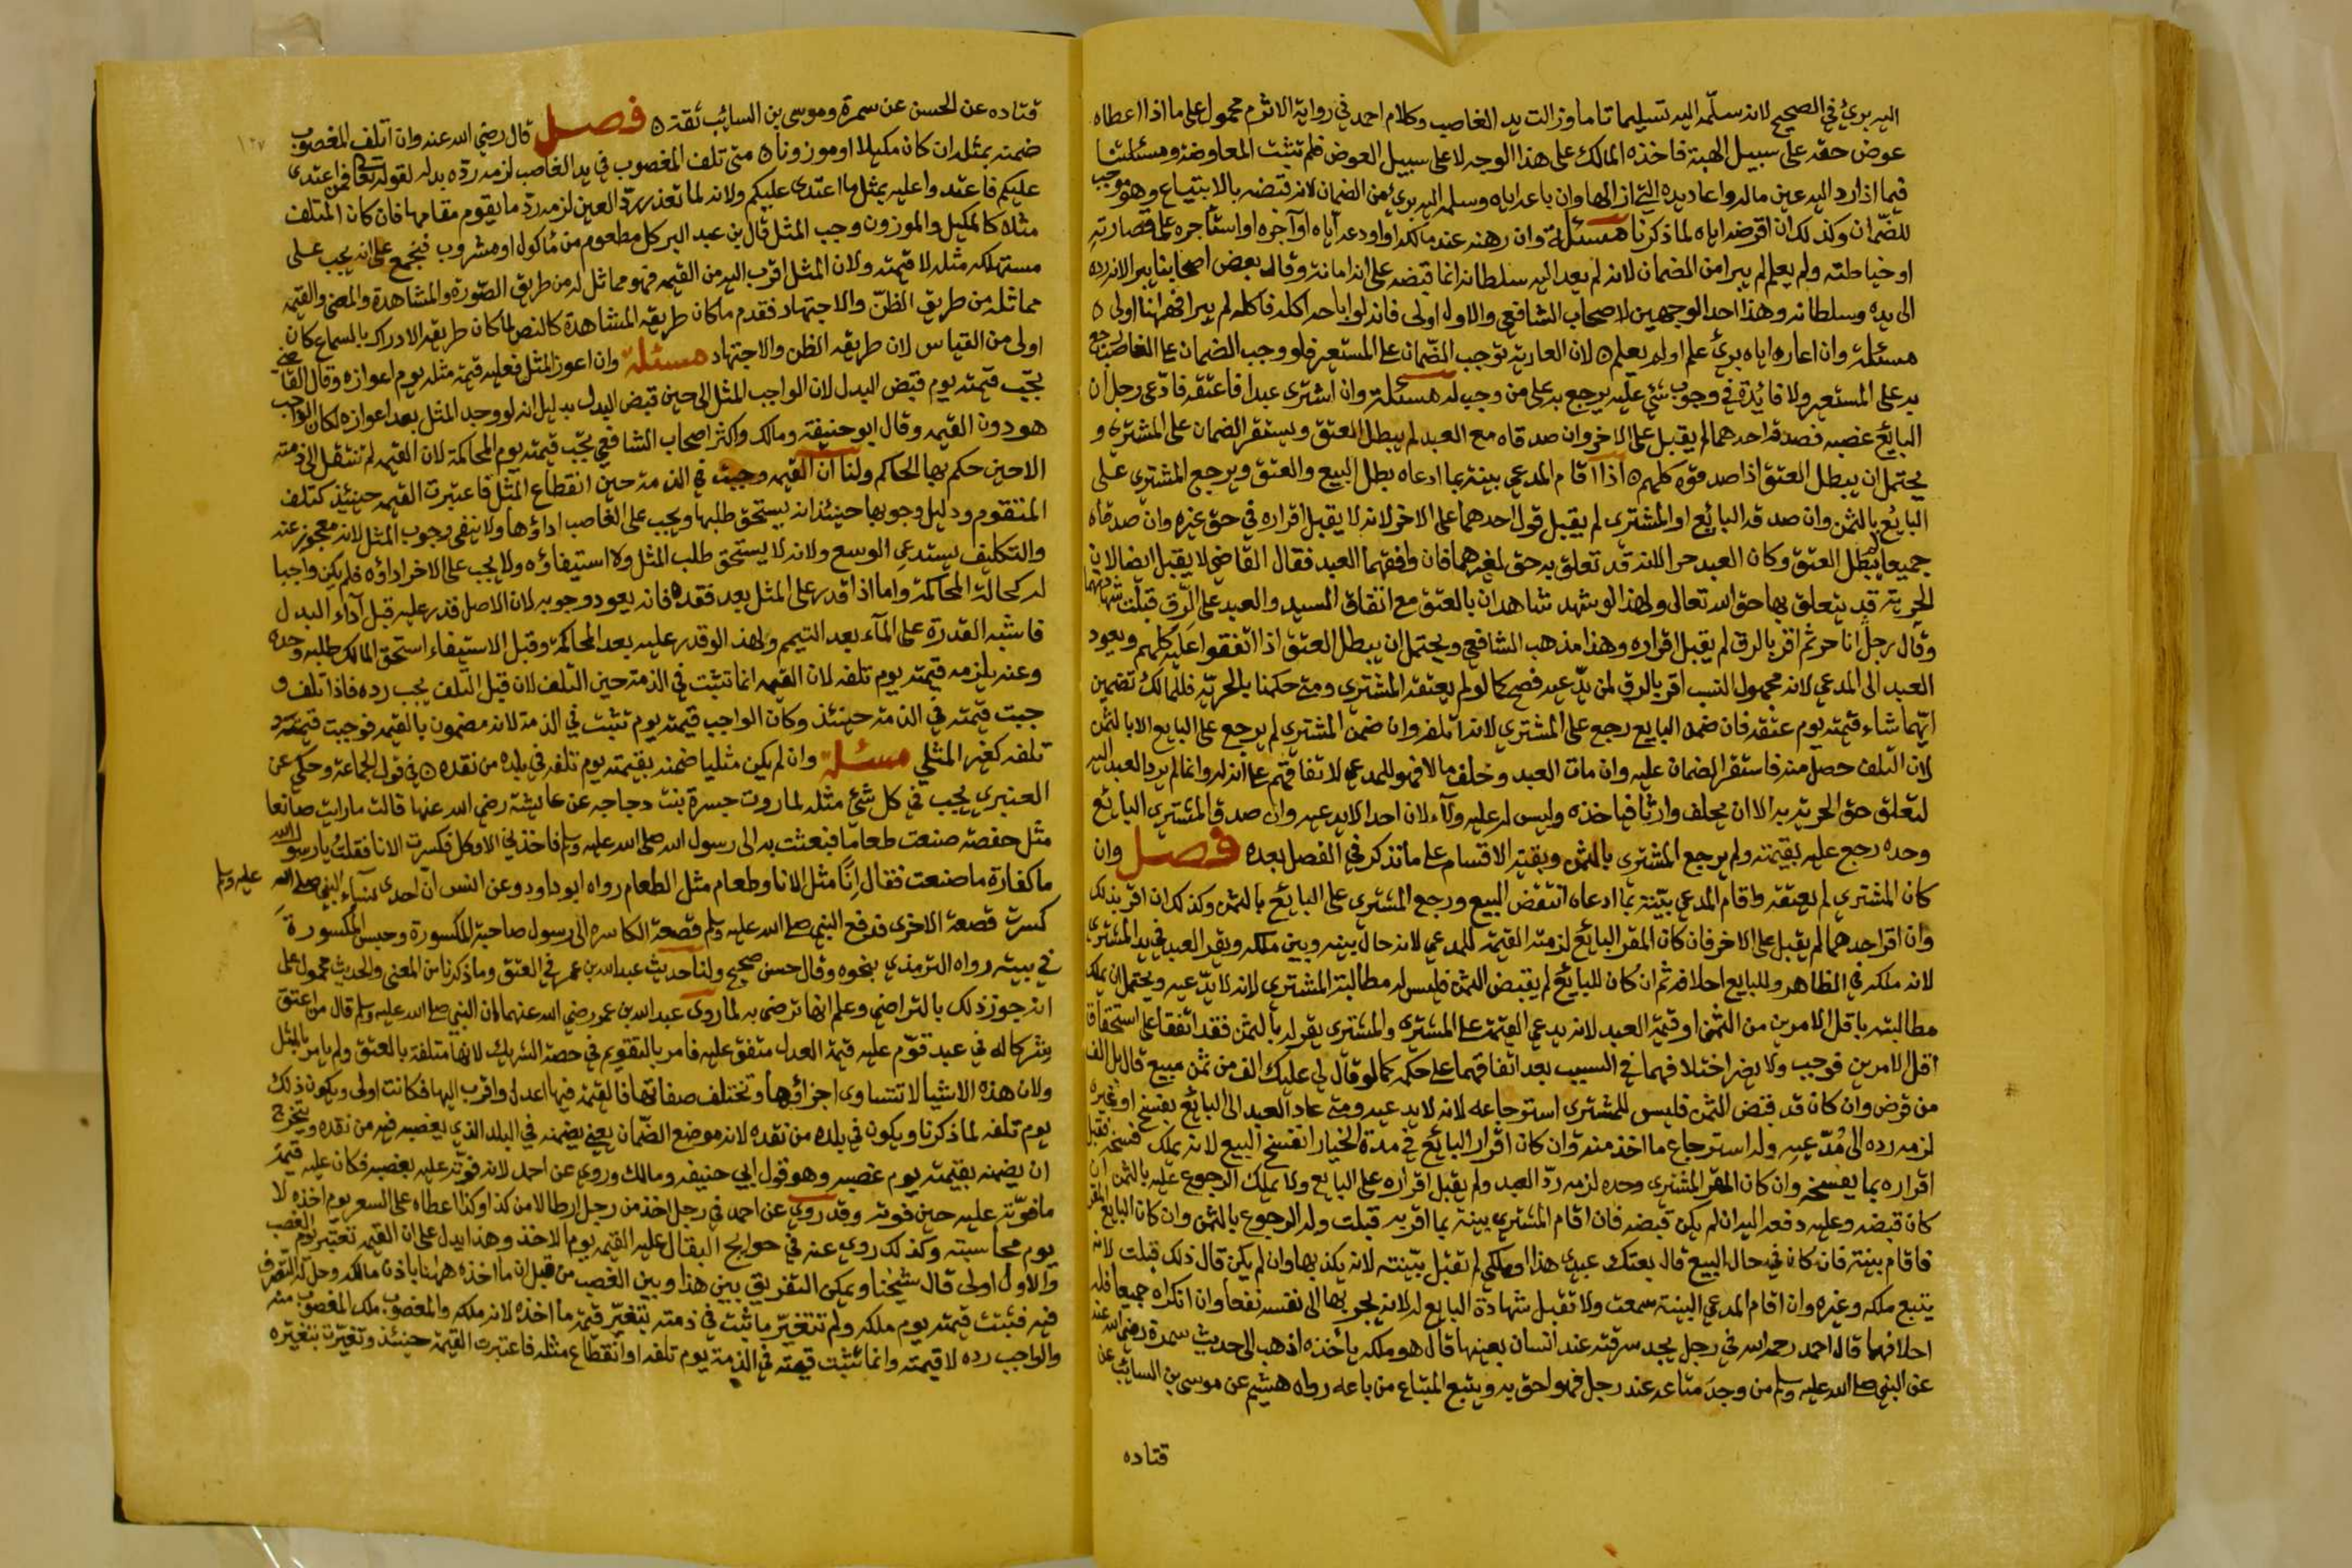 اليه بريء في الصحيح لانه سلّمه اليه تسليما تاما وزالت يد الغاصب وكلام احمد في رواية الاثرم محمول على ما اذا اعطاه
عوض حقه على سبيل الهبة فاخذه المالك على هذا الوجه لا على سبيل العوض فلم تثبت المعاوضة ومسئلتنا
فيما اذا رد اليه عين ماله واعاد يده التي ازالها وان باعه اياه وسلمه اليه بريء من الضمان لانه قبضه بالابتياع وهو موجب
للضّمان وكذلك ان اقرضه اياه لما ذكرنا مسئلة وان رهنه عند مالكه او اودعه اياه او آجره او استأجره على قصارته
او خياطته ولم يعلم لم يبرا من الضمان لانه لم يعد اليه سلطانه انما قبضه على انه امانة وقال بعض اصحابنا يبرا لانه رده
الى يده وسلطانه وهذا احد الوجهين لاصحاب الشافعي والاول اولى فانه لو اباحه اكله فاكله لم يبرا فههنا اولى
مسئلة وان اعاره اياه برئ علم او لم يعلم لان العارية توجب الضّمان على المستعير فلو وجب الضمان على الغاصب رجع
به على المستعير ولا فائدة في وجوب شئ عليه يرجع به على من وجب له مسئلة وان اشترى عبدا فاعتقه فادّعى رجل ان
البائع غصبه فصدقه احدهما لم يقبل على الاخر وان صدقاه مع العبد لم يبطل العتق ويستقر الضمان على المشتري و
يحتمل ان يبطل العتق اذا صدقوه كلهم اذا اقام المدعي بينة بما ادعاه بطل البيع والعتق ويرجع المشتري على
البايع بالثمن وان صدقه البائع او المشترى لم يقبل قول احدهما على الاخر لانه لا يقبل اقراره في حق غيره وان صدقاه
جميعا لم يبطل العتق وكان العبد حرا لانه قد تعلق به حق لغيرهما فان وافقهما العبد فقال القاضي لا يقبل ايضا لان
الحرية قد يتعلق بها حق الله تعالى ولهذا لو شهد شاهدان بالعتق مع اتفاق السيد والعبد على الرّق قبلت شهادتهما
وقال رجل انا حر ثم اقر بالرق لم يقبل اقراره وهذا مذهب الشافعي ويحتمل ان يبطل العتق اذا اتفقوا عليه كلهم ويعود
العبد الى المدعي لانه مجهول النسب اقر بالرق لمن يدّعيه فصح كما لو لم يعتقه المشترى ومتى حكمنا بالحريّة فللمالك تضمين
ايّهما شاء قيمته يوم عتقه فان ضمن البايع رجع على المشتري لانه اتلفه وان ضمن المشتري لم يرجع على البايع الا بالثمن
لان التلف حصل منه فاستقر الضمان عليه وان مات العبد وخلف مالا فهو للمدعي لاتفاقهم على انه له وانما لم يرد العبد اليه
لتعلق حق الحرية به الا ان يخلف وارثا فياخذه وليس له عليه ولآء لان احدا لا يدعيه وان صدقه المشتري البائع
وحده رجع عليه بقيمته ولم يرجع المشتري بالثمن وبقية الاقسام على ما نذكر في الفصل بعده فصل وان
كان المشتري لم يعتقه واقام المدعي بيّنة بما ادعاه انتقض البيع ورجع المشتري على البايع بالثمن وكذلك ان اقر بذلك
وان اقر احدهما لم يقبل على الاخر فان كان المقر البائع لزمته القيمة للمدعي لانه حال بينه وبين ملكه ويقر العبد في يد المشتري
لانه ملكه في الظاهر وللبايع احلافه ثم ان كان للبائع لم يقبض الثمن فليس له مطالبة المشتري لانه لا يدّعيه ويحتمل ان يملك
مطالبته باقل الامرين من الثمن او قيمة العبد لانه يدعي القيمة على المشتري والمشتري يقر له بالثمن فقد اتفقا على استحقاق
اقل الامرين فوجب ولا يضر اختلافهما في السبب بعد اتفاقهما على حكمه كما لو قال لي عليك الف من ثمن مبيع قال بل الف
من قرض وان كان قد قبض الثمن فليس للمشتري استرجاعه لانه لا يدعيه ومتى عاد العبد الى البائع بفسخ او غيره
لزمه رده الى مُدّعيه وله استرجاع ما اخذ منه وان كان اقرار البائع في مدة الخيار انفسخ البيع لانه يملك فسخه فقبل
اقراره بما يفسخه وان كان المقر المشتري وحده لزمه ردّ العبد ولم يقبل اقراره على البايع ولا يملك الرجوع عليه بالثمن ان
كان قبضه وعليه دفعه اليه ان لم يكن قبضه فان اقام المشتري بينة بما اقر به قبلت وله الرجوع بالثمن وان كان البايع المقر
فاقام بينة فان كان في حال البيع قال بعتك عبدي هذا او ملكي لم تقبل بيّنته لانه يكذبها وان لم يكن قال ذلك قبلت لانه
يتبع ملكه وغيره وان اقام المدعي البينة سمعت ولا تقبل شهادة البايع له لانه يجر بها الى نفسه نفعا وان انكراه جميعا فله
احلافهما قال احمد رحمه الله في رجل يجد سرقته عند انسان بعينها قال هو ملكه يأخذه اذهب الى حديث سمرة رضي الله عنه
عن النبي صلى الله عليه وسلم من وجد متاعه عند رجل فهو احق به ويتبع المبتاع من باعه رواه هشيم عن موسى بن السائب عن
قتاده
١٢٧
قتاده عن الحسن عن سمرة وموسى بن السائب ثقة فصل قال رضي الله عنه وان اتلف المغصوب
ضمنه بمثله ان كان مكيلا او موزونا متى تلف المغصوب في يد الغاصب لزمه رده بدله لقوله تعالى فمن اعتدى
عليكم فاعتدوا عليه بمثل ما اعتدى عليكم ولانه لما تعذر ردّ العين لزمه ردّ ما يقوم مقامها فان كان المتلف
مثله كالمكيل والموزون وجب المثل قال بن عبد البر كل مطعوم من مأكول او مشروب فمجمع على انه يجب على
مستهلكه مثله لا قيمته ولان المثل اقرب اليه من القيمه فهو مماثل له من طريق الصّورة والمشاهدة والمعنى والقيمه
مماثله من طريق الظنّ والاجتهاد فقدم ما كان طريقه المشاهدة كالنص لما كان طريقه الادراك بالسماع كان
اولى من القياس لان طريقه الظن والاجتهاد مسئلة وان اعوز المثل فعليه قيمة مثله يوم اعوازه وقال القاضي
يجب قيمته يوم قبض البدل لان الواجب المثل الى حين قبض البدل بدليل انه لو وجد المثل بعد اعوازه لكان الواجب
هو دون القيمه وقال ابو حنيفة ومالك واكثر اصحاب الشافعي يجب قيمته يوم المحاكمة لان القيمه لم تنتقل الى ذمته
الا حين حكم بها الحاكم ولنا ان القيمه وجبت في الذمة حين انقطاع المثل فاعتبرت القيمه حينئذ كتلف
المتقوم ودليل وجوبها حينئذ انه يستحق طلبها ويجب على الغاصب اداؤها ولا ينفى وجوب المثل لانه معجوز عنه
والتكليف يستدعي الوسع ولانه لا يستحق طلب المثل ولا استيفاؤه ولا يجب على الاخر اداؤه فلم يكن واجبا
له كحالة المحاكمة واما اذا قدر على المثل بعد فقده فانه يعود وجوبه لان الاصل قدر عليه قبل آداء البدل
فاشبه القدرة على المآء بعد التيمم ولهذا لو قدر عليه بعد المحاكمة وقبل الاستيفاء استحق المالك طلبه وحده
وعنه يلزمه قيمته يوم تلفه لان القيمه انما تثبت في الذمة حين التلف لان قبل التلف يجب رده فاذا تلف و
جبت قيمته في الذمة حينئذ وكان الواجب قيمته يوم تثبت في الذمة لانه مضمون بالقيمه فوجبت قيمته يوم
تلفه كغير المثلي مسئلة وان لم يكن مثليا ضمنه بقيمته يوم تلفه في بلده من نقده في قول الجماعة وحكي عن
العنبري يجب في كل شئ مثله لما روت جسرة بنت دجاجه عن عايشة رضي الله عنها قالت ما رايت صانعا
مثل حفصة صنعت طعاما فبعثت به الى رسول الله صلى الله عليه وسلم فاخذني الافكل فكسرت الانا فقلت يا رسول الله
ما كفارة ما صنعت فقال إناً مثل الانا وطعام مثل الطعام رواه ابو داود وعن انس ان احدى نساء النبي صلى الله عليه وسلم
كسرت قصعة الاخرى فدفع النبي صلى الله عليه وسلم قصعة الكاسره الى رسول صاحبة المكسورة وحبس المكسورة
في بيته رواه الترمذي بنحوه وقال حسن صحيح ولنا حديث عبد الله بن عمر في العتق وما ذكرنا من المعنى والحديث محمول على
انه جوز ذلك بالتراضي وعلم انها ترضى به لما روى عبد الله بن عمر رضي الله عنهما ان النبي صلى الله عليه وسلم قال من اعتق
شركا له في عبد قوّم عليه قيمة العدل متفق عليه فامر بالتقويم في حصة الشريك لانها متلفة بالعتق ولم يامر بالمثل
ولان هذه الاشيا لا تتساوى اجزاؤها وتختلف صفاتها فالقيمة فيها اعدل واقرب اليها فكانت اولى ويكون ذلك
يوم تلفه لما ذكرنا ويكون في بلده من نقده لانه موضع الضّمان يعني يضمنه في البلد الذي يغصبه فيه من نقده ويتخرج
ان يضمنه بقيمته يوم غصبه وهو قول ابي حنيفه ومالك وروي عن احمد لانه فوّته عليه بغصبه فكان عليه قيمة
ما فوّته عليه حين فوته وقد روي عن احمد في رجل اخذ من رجل ارطالا من كذا وكذا اعطاه على السعر يوم اخذه لا
يوم محاسبته وكذلك روى عنه في حوايج البقال عليه القيمه يوم الاخذ وهذا يدل على ان القيمه تعتبر يوم الغصب
والاول اولى قال شيخنا ويمكن التفريق بين هذا وبين الغصب من قبل ان ما اخذه ههنا باذن مالكه وحل له التصرف
فيه فثبتت قيمته يوم ملكه ولم تتغيّر ما ثبت في ذمته بتغيّر قيمة ما اخذه لانه ملكه والمغصوب ملك المغصوب منه
والواجب رده لا قيمته وانما تثبت قيمته في الذمة يوم تلفه او انقطاع مثله فاعتبرت القيمة حينئذ وتغيّرت بتغيّره